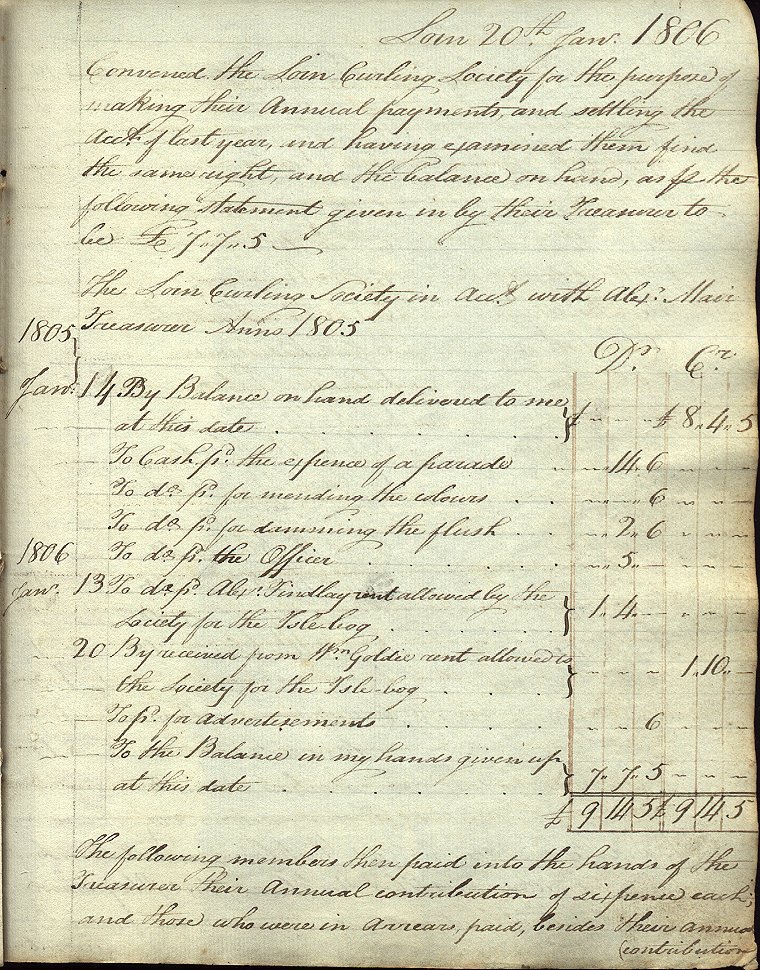 Loin 20th Janr. 1806
Convened the Loin Curling Society for the purpose of
making their Annual payments, and settling the
Acct. of last year, and having examined them find
the same right, and the balance on hand, as pr the
following statement given in by their Treasurer to
be £ 7,, 7,, 5 —
The Loin Curling Society in Acct. with Alexr. Mair
Treasurer Anno 1805
Dr. Cr.
1805
Janr. 14 By Balance on hand delivered to me
at this date . . . . . £ " - - £ 8,, 4,, 5
To Cash pd. the expence of a parade . . " 14,, 6 - - -
To do. pd. for mending the colours . . " " 6 " - -
To do. pd. for damming the flush . . " 2,, 6 " - -
1806 To do. pd. the Officer . . . . " 5,, - - - -
Janr. 13 To do. pd. Alexr. Findlay rent allowed by the
Society for the Isle-bog . . . . 1,, 4,, - - - -
20 By received from Wm Goldie rent allowed to
the Society for the Isle-bog . . . . - - - 1,, 10,, -
To pd. for advertisements . . . . - - 6 - - -
To the Balance in my hands given up
at this date . . . . . 7,, 7,, 5 - - -
£ 9 14 5 £ 9 14 5
The following members then paid into the hands of the
Treasurer their Annual contribution of sixpence each;
and those who were in Arrears, paid, besides their annual
(contribution